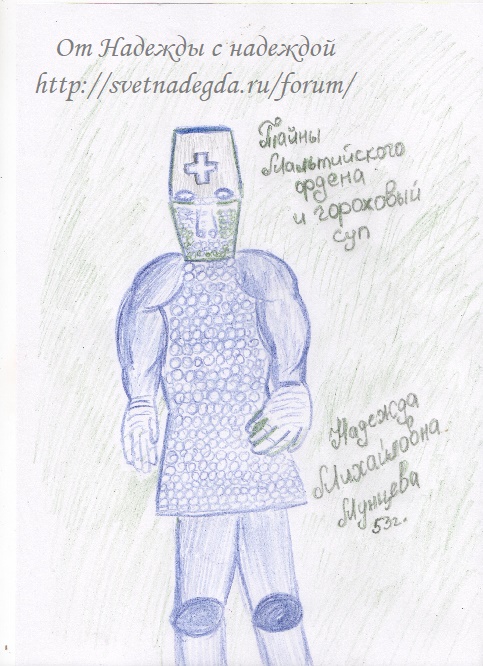 От Надежды с надеждой
http://svetnadegda.ru/forum/
Тайны
Мальтийского
ордена
и гороховый
суп
Надежда
Михайловна
Мунцева
53г.